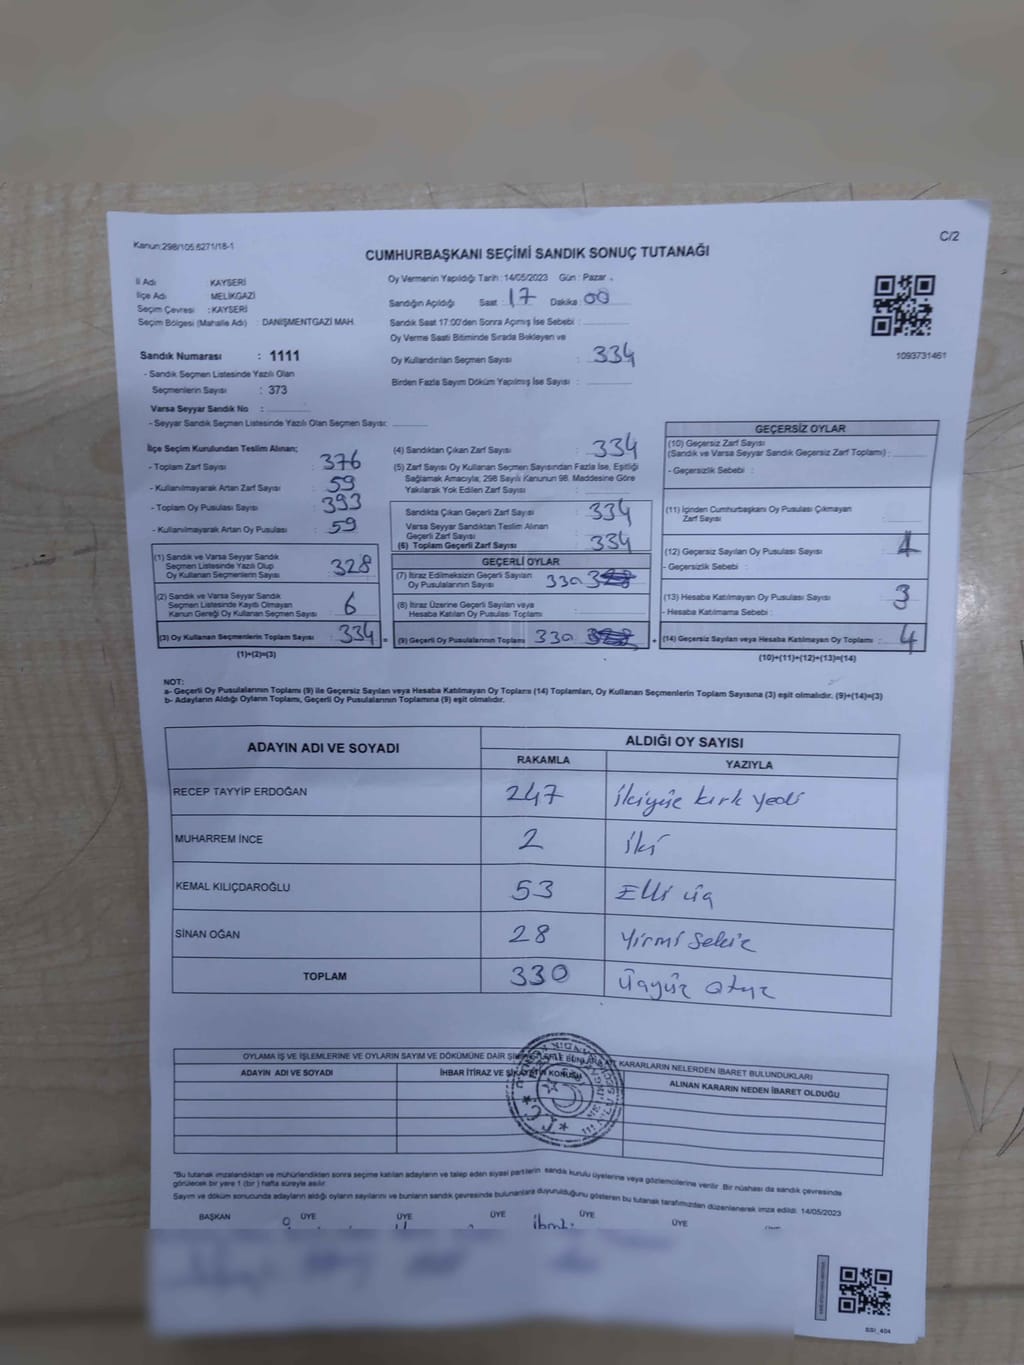 Kanun:298/105.6271/18-1
C/2
CUMHURBAŞKANI SEÇİMİ SANDIK SONUÇ TUTANAĞI
İl Adı KAYSERİ
İlçe Adı MELİKGAZİ
Seçim Çevresi : KAYSERİ
Seçim Bölgesi (Mahalle Adı) : DANİŞMENTGAZİ MAH.
Sandık Numarası : 1111
- Sandık Seçmen Listesinde Yazılı Olan
Seçmenlerin Sayısı : 373
Varsa Seyyar Sandık No :
- Seyyar Sandık Seçmen Listesinde Yazılı Olan Seçmen Sayısı:
Oy Vermenin Yapıldığı Tarih : 14/05/2023 Gün : Pazar
Sandığın Açıldığı Saat : 17 Dakika : 00
Sandık Saat 17:00'den Sonra Açılmış İse Sebebi :
Oy Verme Saati Bitiminde Sırada Bekleyen ve
Oy Kullandırılan Seçmen Sayısı : 334
Birden Fazla Sayım Döküm Yapılmış İse Sayısı :
1093731461
İlçe Seçim Kurulundan Teslim Alınan;
- Toplam Zarf Sayısı : 376
- Kullanılmayarak Artan Zarf Sayısı : 59
- Toplam Oy Pusulası Sayısı : 393
- Kullanılmayarak Artan Oy Pusulası : 59
(1) Sandık ve Varsa Seyyar Sandık
Seçmen Listesinde Yazılı Olup
Oy Kullanan Seçmenlerin Sayısı : 328
(2) Sandık ve Varsa Seyyar Sandık
Seçmen Listesinde Kayıtlı Olmayan
Kanun Gereği Oy Kullanan Seçmen Sayısı : 6
(3) Oy Kullanan Seçmenlerin Toplam Sayısı : 334 =
(1)+(2)=(3)
(4) Sandıktan Çıkan Zarf Sayısı : 334
(5) Zarf Sayısı Oy Kullanan Seçmen Sayısından Fazla İse, Eşitliği
Sağlamak Amacıyla, 298 Sayılı Kanunun 98. Maddesine Göre
Yakılarak Yok Edilen Zarf Sayısı :
Sandıkta Çıkan Geçerli Zarf Sayısı : 334
Varsa Seyyar Sandıktan Teslim Alınan
Geçerli Zarf Sayısı :
(6) Toplam Geçerli Zarf Sayısı : 334
GEÇERLİ OYLAR
(7) İtiraz Edilmeksizin Geçerli Sayılan
Oy Pusulalarının Sayısı : 330
(8) İtiraz Üzerine Geçerli Sayılan veya
Hesaba Katılan Oy Pusulası Toplamı :
(9) Geçerli Oy Pusulalarının Toplamı : 330 +
GEÇERSİZ OYLAR
(10) Geçersiz Zarf Sayısı
(Sandık ve Varsa Seyyar Sandık Geçersiz Zarf Toplamı) :
- Geçersizlik Sebebi :
(11) İçinden Cumhurbaşkanı Oy Pusulası Çıkmayan
Zarf Sayısı :
(12) Geçersiz Sayılan Oy Pusulası Sayısı : 1
- Geçersizlik Sebebi :
(13) Hesaba Katılmayan Oy Pusulası Sayısı : 3
- Hesaba Katılmama Sebebi :
(14) Geçersiz Sayılan veya Hesaba Katılmayan Oy Toplamı : 4
(10)+(11)+(12)+(13)=(14)
NOT:
a- Geçerli Oy Pusulalarının Toplamı (9) ile Geçersiz Sayılan veya Hesaba Katılmayan Oy Toplamı (14) Toplamları, Oy Kullanan Seçmenlerin Toplam Sayısına (3) eşit olmalıdır. (9)+(14)=(3)
b- Adayların Aldığı Oyların Toplamı, Geçerli Oy Pusulalarının Toplamına (9) eşit olmalıdır.
ADAYIN ADI VE SOYADI
ALDIĞI OY SAYISI
RAKAMLA YAZIYLA
RECEP TAYYİP ERDOĞAN 247 İkiyüz kırk yedi
MUHARREM İNCE 2 İki
KEMAL KILIÇDAROĞLU 53 Elli üç
SİNAN OĞAN 28 Yirmi Sekiz
TOPLAM 330 Üçyüz otuz
OYLAMA İŞ VE İŞLEMLERİNE VE OYLARIN SAYIM VE DÖKÜMÜNE DAİR KARARLARIN NELERDEN İBARET BULUNDUKLARI
ADAYIN ADI VE SOYADI
İHBAR İTİRAZ VE ŞİKAYETİN KONUSU
ALINAN KARARIN NEDEN İBARET OLDUĞU
T.C.
*Bu tutanak imzalandıktan ve mühürlendikten sonra seçime katılan adayların ve talep eden siyasi partilerin sandık kurulu üyelerine veya gözlemcilerine verilir. Bir nüshası da sandık çevresinde
görülecek bir yere 1 (bir) hafta süreyle asılır.
Sayım ve döküm sonucunda adayların aldığı oyların sayılarını ve bunların sandık çevresinde bulunanlara duyurulduğunu gösteren bu tutanak tarafımızdan düzenlenerek imza edildi. 14/05/2023
BAŞKAN ÜYE ÜYE ÜYE ÜYE ÜYE
SSI_404